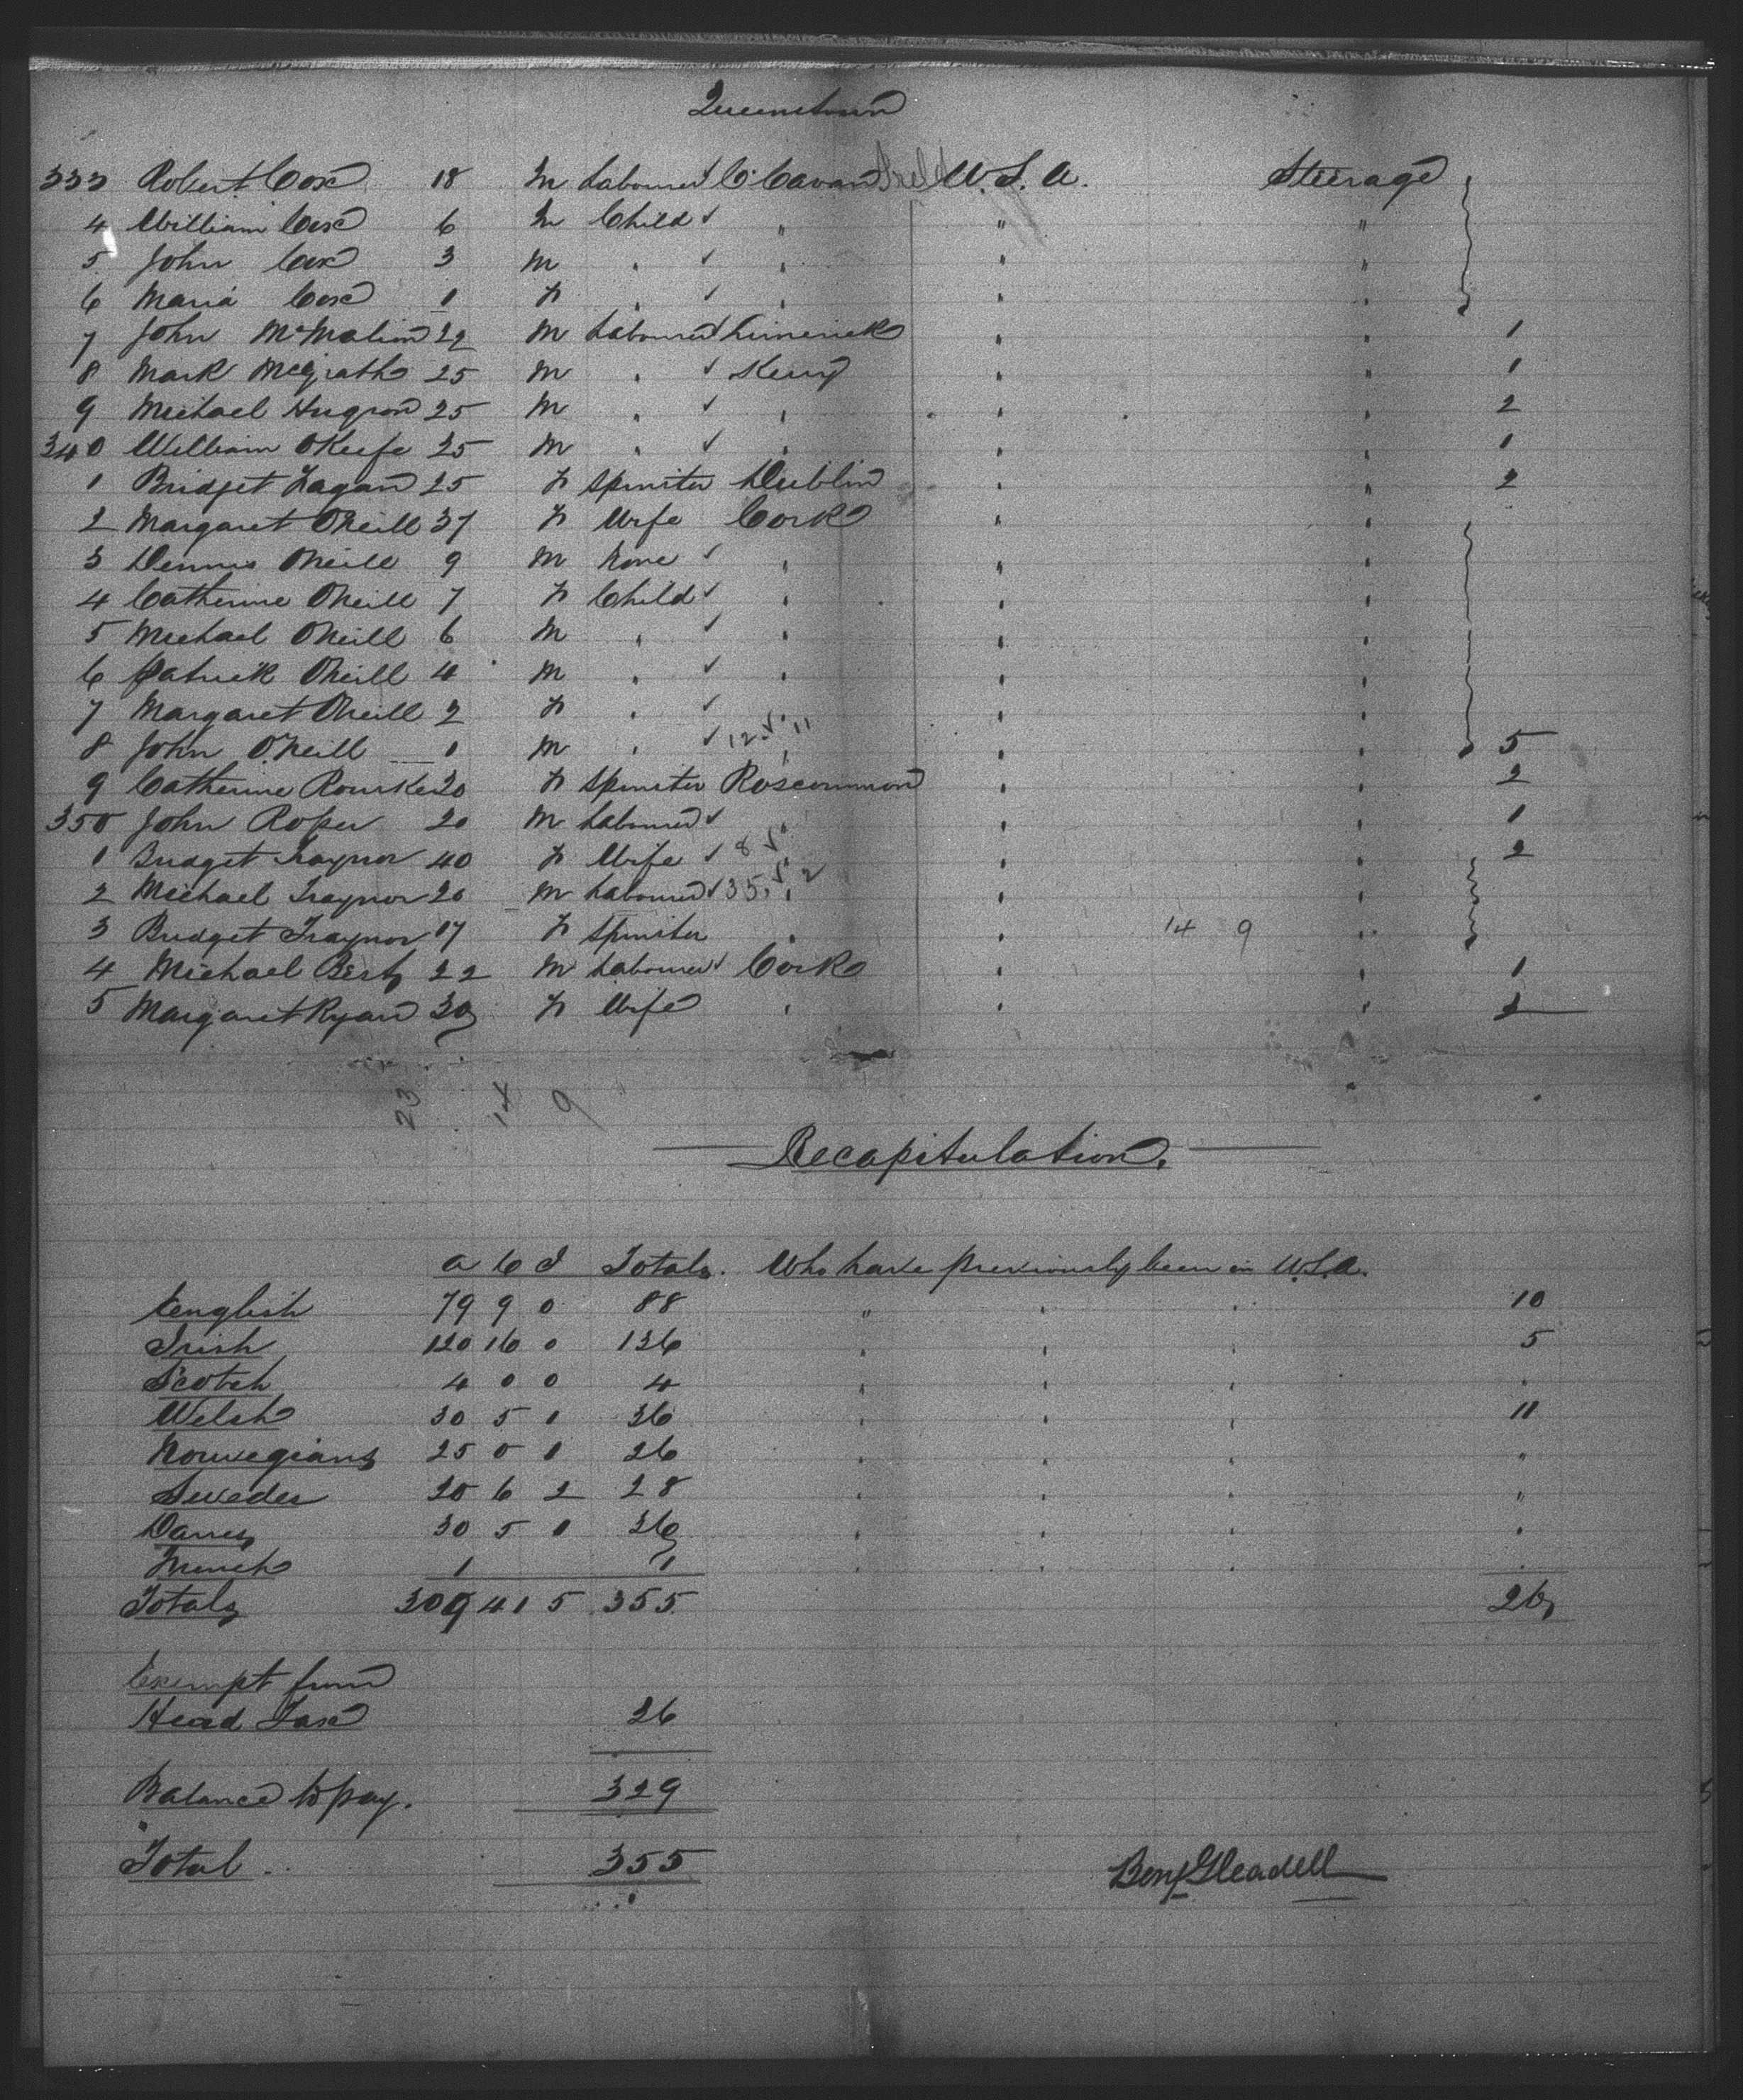 Queenstown
333 Robert Cox 18 M Labourer ✓ C. Cavan Ireld U.S.A. Steerage
4 William Cox 6 M Child ✓ " " "
5 John Cox 3 M " ✓ " " "
6 Maria Cox 1 F " ✓ " " "
7 John McMahon 22 M Labourer ✓ Limerick " " 1
8 Mark McGrath 25 M " ✓ Kerry " " 1
9 Michael 25 M " ✓ " " " 2
340 William OKeefe 25 M " ✓ " " " 1
1 Bridget Fagan 25 F Spinster Dublin " " 2
2 Margaret ONeill 37 F Wife Cork " "
3 Dennis ONeill 9 M None ✓ " " "
4 Catherine ONeill 7 F Child ✓ " " "
5 Michael ONeill 6 M " ✓ " " "
6 Patrick ONeill 4 M " ✓ " " "
7 Margaret ONeill 2 F " ✓ " "
8 John O'Neill 1 M " ✓ 12 ✓ 11 " " " 5
9 Catherine Rourke 20 F Spinster Roscommon " " 2
350 John Roper 20 M Labourer ✓ " " 1
1 Bridget Traynor 40 F Wife ✓ 8 ✓ " " " 2
2 Michael Traynor 20 M Labourer ✓ 35 ✓ 2 " " "
3 Bridget Traynor 17 F Spinster " " 14 9 "
4 Michael 22 M Labourer ✓ Cork " " 1
5 Margaret Ryan 30 F Wife " " " 2
23 14 9
Recapitulation.
A C I Totals. Who have previously been in U.S.A.
English 79 9 0 88 " " " 10
Irish 120 16 0 136 " " " 5
Scotch 4 0 0 4 " " " "
Welsh 30 5 1 36 " " " 11
Norwegians 25 0 1 26 " " " "
Swedes 20 6 2 28 " " " "
Danes 30 5 1 36 " " " "
French 1 1 " " " "
Totals 309 41 5 355 26
Exempt from
Head Tax 26
Balance to pay. 329
Total 355
Benj Gleadell